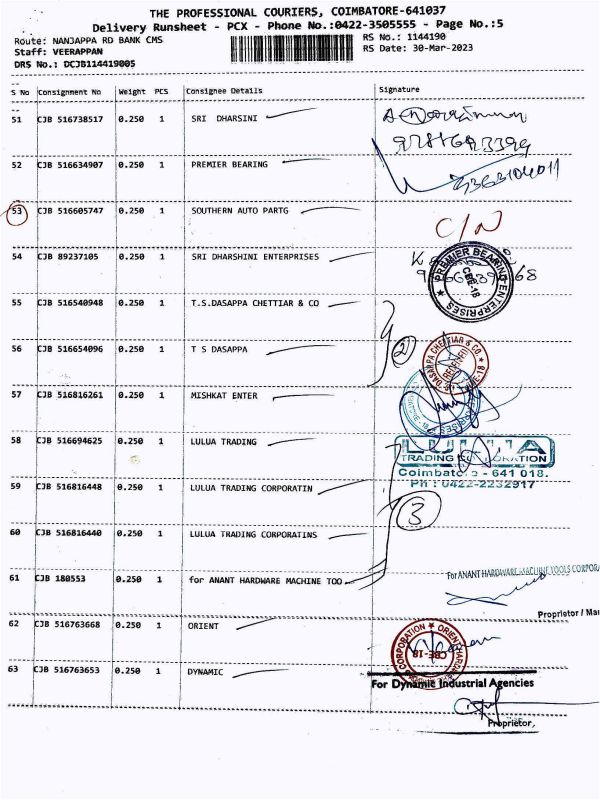 THE PROFESSIONAL COURIERS, COIMBATORE-641037
Delivery Runsheet - PCX - Phone No.:0422-3505555 - Page No.:5
Route: NANJAPPA RD BANK CMS
RS No.: 1144190
Staff: VEERAPPAN
RS Date: 30-Mar-2023
DRS No.: DCJB114419005
S No Consignment No Weight PCS Consignee Details Signature
51 CJB 516738517 0.250 1 SRI DHARSINI
52 CJB 516634907 0.250 1 PREMIER BEARING
53 CJB 516605747 0.250 1 SOUTHERN AUTO PARTG
C/N
54 CJB 89237105 0.250 1 SRI DHARSHINI ENTERPRISES
PREMIER BEARING ENTERPRISES
CBE-18
55 CJB 516540948 0.250 1 T.S.DASAPPA CHETTIAR & CO
56 CJB 516654096 0.250 1 T S DASAPPA
2
57 CJB 516816261 0.250 1 MISHKAT ENTER
58 CJB 516694625 0.250 1 LULUA TRADING
LULUA
TRADING CORPORATION
Coimbatore - 641 018.
Ph : 0422-2232917
59 CJB 516816448 0.250 1 LULUA TRADING CORPORATIN
3
60 CJB 516816440 0.250 1 LULUA TRADING CORPORATINS
61 CJB 180553 0.250 1 for ANANT HARDWARE MACHINE TOO
For ANANT HARDWARE MACHINE TOOLS CORPORA
Proprietor / Man
62 CJB 516763668 0.250 1 ORIENT
CBE-18
63 CJB 516763653 0.250 1 DYNAMIC
For Dynamic Industrial Agencies
Proprietor,